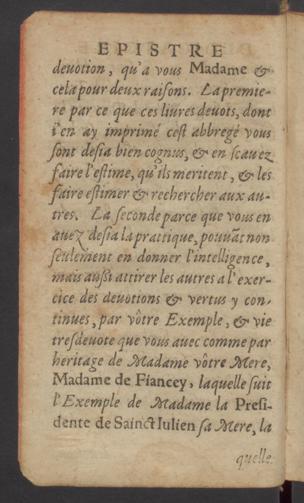 EPISTRE
deuotion, qu'a vous Madame &
cela pour deux raisons. La premie-
re par ce que ces liures deuots, dont
i'en ay imprimé cest abbregé vous
sont desia bien cognus, & en scauez
faire l'estime, qu'ils meritent, & les
faire estimer & rechercher aux au-
tres. La seconde parce que vous en
auez desia la prattique, pouuãt non
seulement en donner l'intelligence,
mais aussi attirer les autres a l'exer-
cice des deuotions & vertus y con-
tinues, par vôtre Exemple, & vie
tresdeuote que vous auec comme par
heritage de Madame vôtre Mere,
Madame de Fiancey, laquelle suit
l'Exemple de Madame la Presi-
dente de Sainct Iulien sa Mere, la
quelle